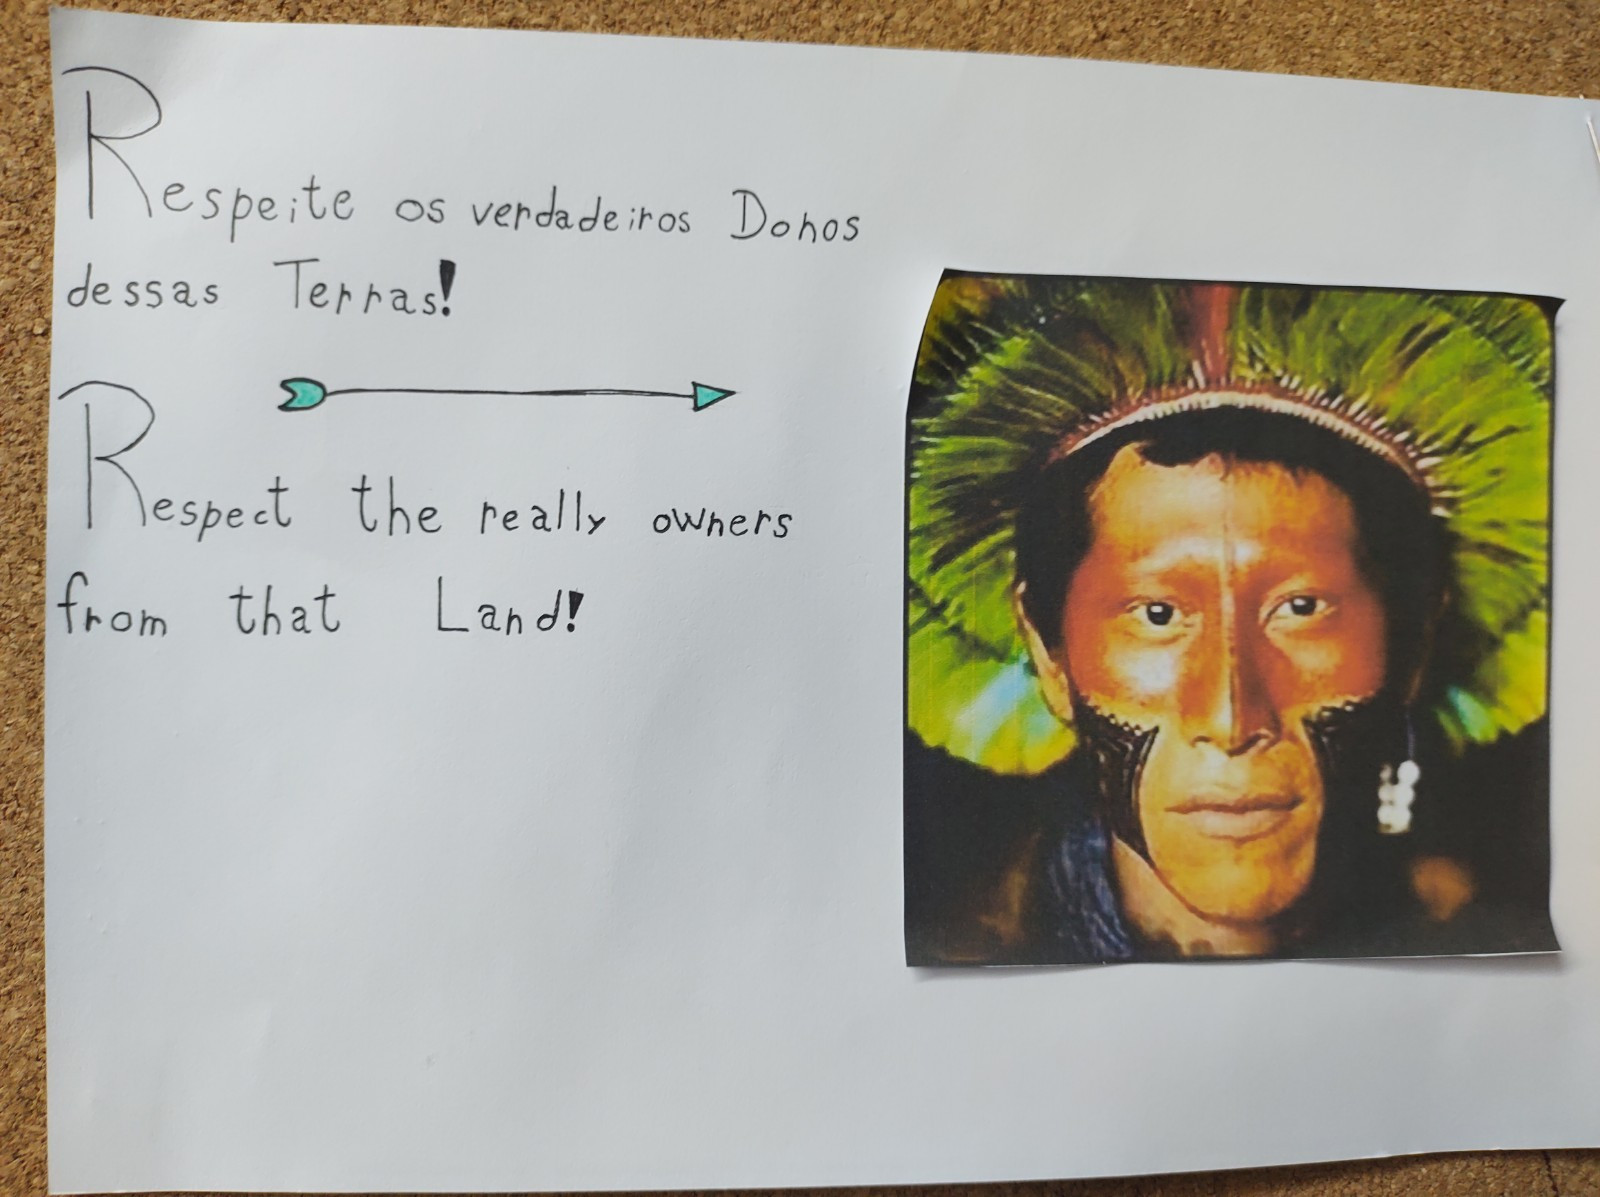 Respeite os verdadeiros Donos
dessas Terras!
Respect the really owners
from that Land!